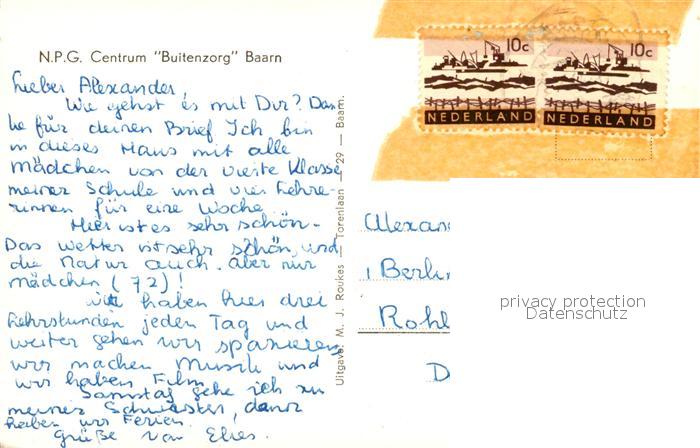 N.P.G. Centrum "Buitenzorg" Baarn
Lieber Alexander,
Wie gehst es mit Dir? Dan
ke für deinen Brief Ich bin
in dieses Haus mit alle
Mädchen von der vierte Klasse
meiner Schule und vier Lehre-
rinnen für eine Woche
Hier ist es sehr schön.
Das wetter ist sehr schön, und
die Natur auch. Aber nur
Mädchen (72)!
wir haben hier drei
Lehrstunden jeden Tag und
weiter gehen wir spazieren,
wir machen Musik und
wir haben Film
Samstag gehe ich zu
meiner Schwester, dann
haben wir Ferien.
Grüße von Elies.
Uitgave: M. J. Roukes — Torenlaan — 29 — Baarn.
10c 10c
NEDERLAND NEDERLAND
Alexan
Berlin
Rohl
D
privacy protection
Datenschutz